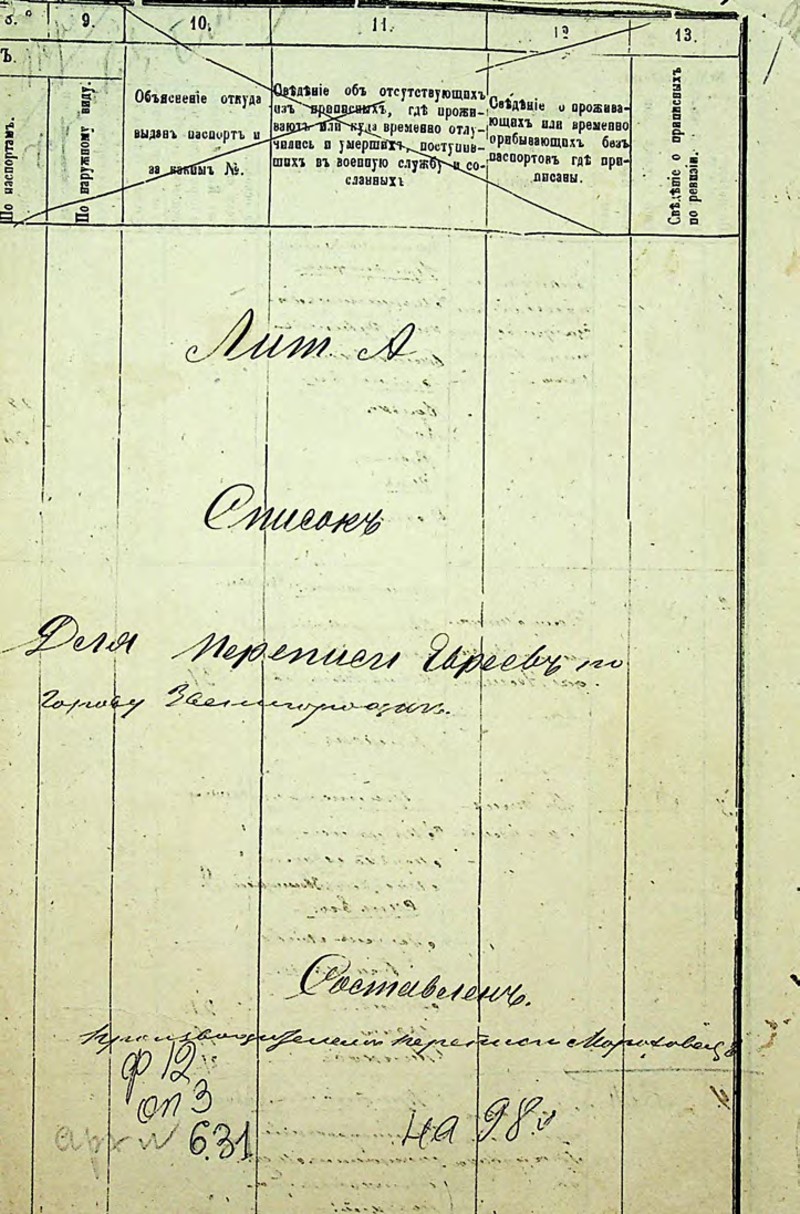 8.
9.
10.
11.
12
13.
Ъ.
По паспортамъ.
По наружному виду.
Объясненіе откуда
выданъ паспортъ и
за какимъ №.
Свѣдѣніе объ отсутствующихъ
изъ приписныхъ, гдѣ прожи-
ваютъ или куда временно отлу-
чились и умершихъ, поступив-
шихъ въ военную службу и со-
сланныхъ
Свѣдѣніе о прожива-
ющихъ или временно
прибывающихъ безъ
паспортовъ гдѣ при-
писаны.
Свѣдѣніе о приписныхъ
по ревизіи.
Лит. А
Списокъ
Деля переписи Евреевъ по
городу Звенигородкѣ.
Составленъ.
производителемъ переписи
ф 12
оп 3
арх № 631
на 98